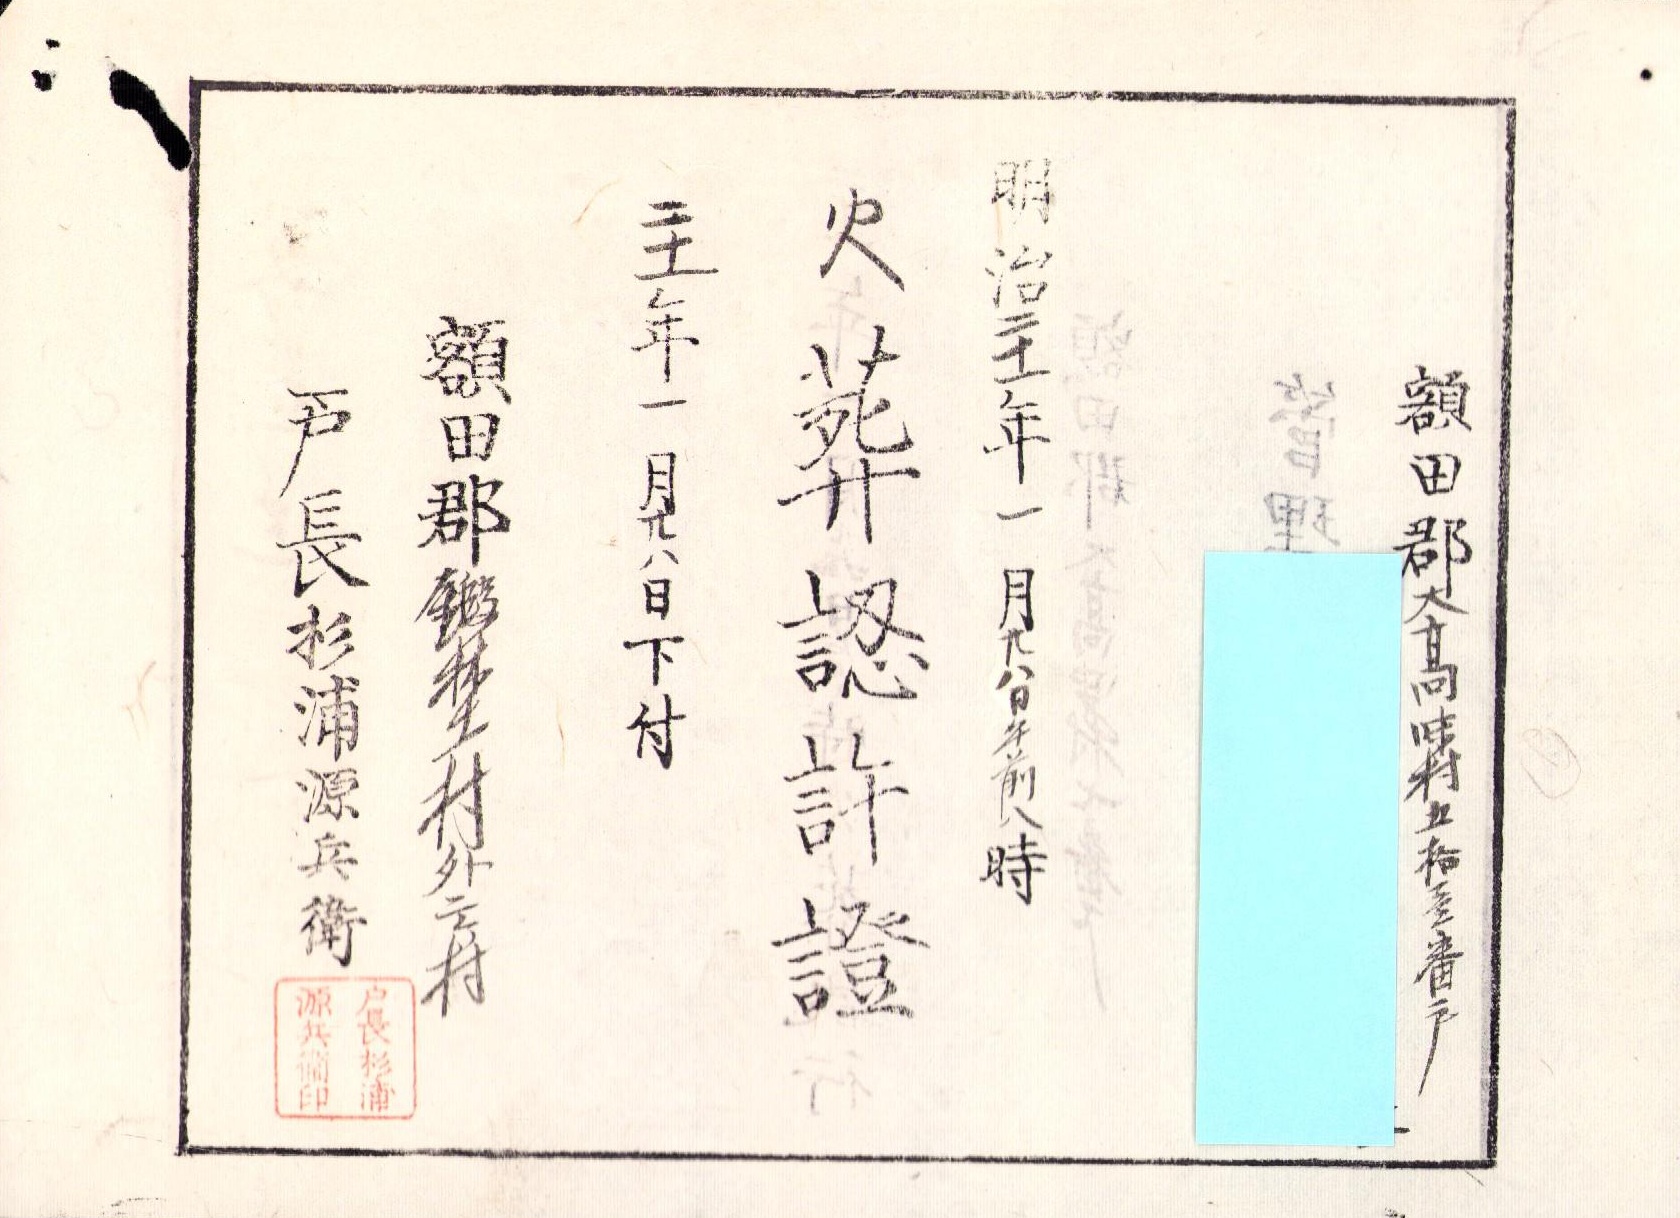 額田郡大高味村五拾壱番戸
明治二十一年一月廿八日午前八時
火葬認許證
二十一年一月廿八日下付
額田郡鍛埜村外三村
戸長杉浦源兵衛
戸長杉浦
源兵衛印